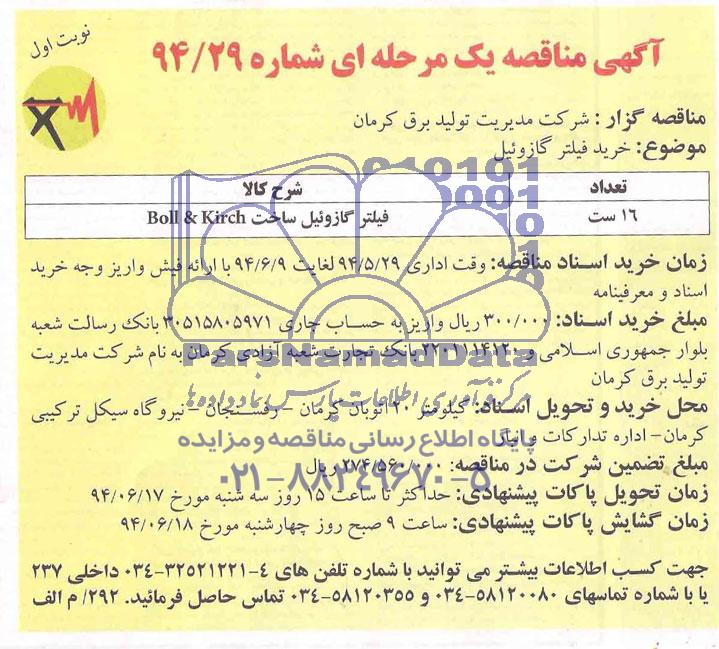 نوبت اول
آگهی مناقصه یک مرحله ای شماره ۹۴/۲۹
مناقصه گزار : شرکت مدیریت تولید برق کرمان
موضوع: خرید فیلتر گازوئیل
شرح کالا تعداد
فیلتر گازوئیل ساخت Boll & Kirch ۱۶ ست
زمان خرید اسناد مناقصه: وقت اداری ۹۴/۵/۲۹ لغایت ۹۴/۶/۹ با ارائه فیش واریز وجه خرید
اسناد و معرفینامه
مبلغ خرید اسناد: ۳۰۰/۰۰۰ ریال واریز به حساب جاری ۳۰۵۱۵۸۰۵۹۷۱ بانک رسالت شعبه
بلوار جمهوری اسلامی و ۲۲۰۱۱۱۴۱۲۰ بانک تجارت شعبه آزادی کرمان به نام شرکت مدیریت
تولید برق کرمان
ParsNamadData
مرکز فرآوری اطلاعات پارس نماد داده ها
محل خرید و تحویل اسناد: کیلومتر ۲۰ اتوبان کرمان – رفسنجان – نیروگاه سیکل ترکیبی
کرمان– اداره تدارکات و انبار
پایگاه اطلاع رسانی مناقصه و مزایده
مبلغ تضمین شرکت در مناقصه: ۲۷۴/۵۶۰/۰۰۰ ریال
۰۲۱-۸۸۳۴۹۶۷۰-۵
زمان تحویل پاکات پیشنهادی: حداکثر تا ساعت ۱۵ روز سه شنبه مورخ ۹۴/۰۶/۱۷
زمان گشایش پاکات پیشنهادی: ساعت ۹ صبح روز چهارشنبه مورخ ۹۴/۰۶/۱۸
جهت کسب اطلاعات بیشتر می توانید با شماره تلفن های ۴-۳۲۵۲۱۲۲۱-۰۳۴ داخلی ۲۳۷
یا با شماره تماسهای ۵۸۱۲۰۰۸۰-۰۳۴ و ۵۸۱۲۰۳۵۵-۰۳۴ تماس حاصل فرمائید. ۲۹۲/ م الف